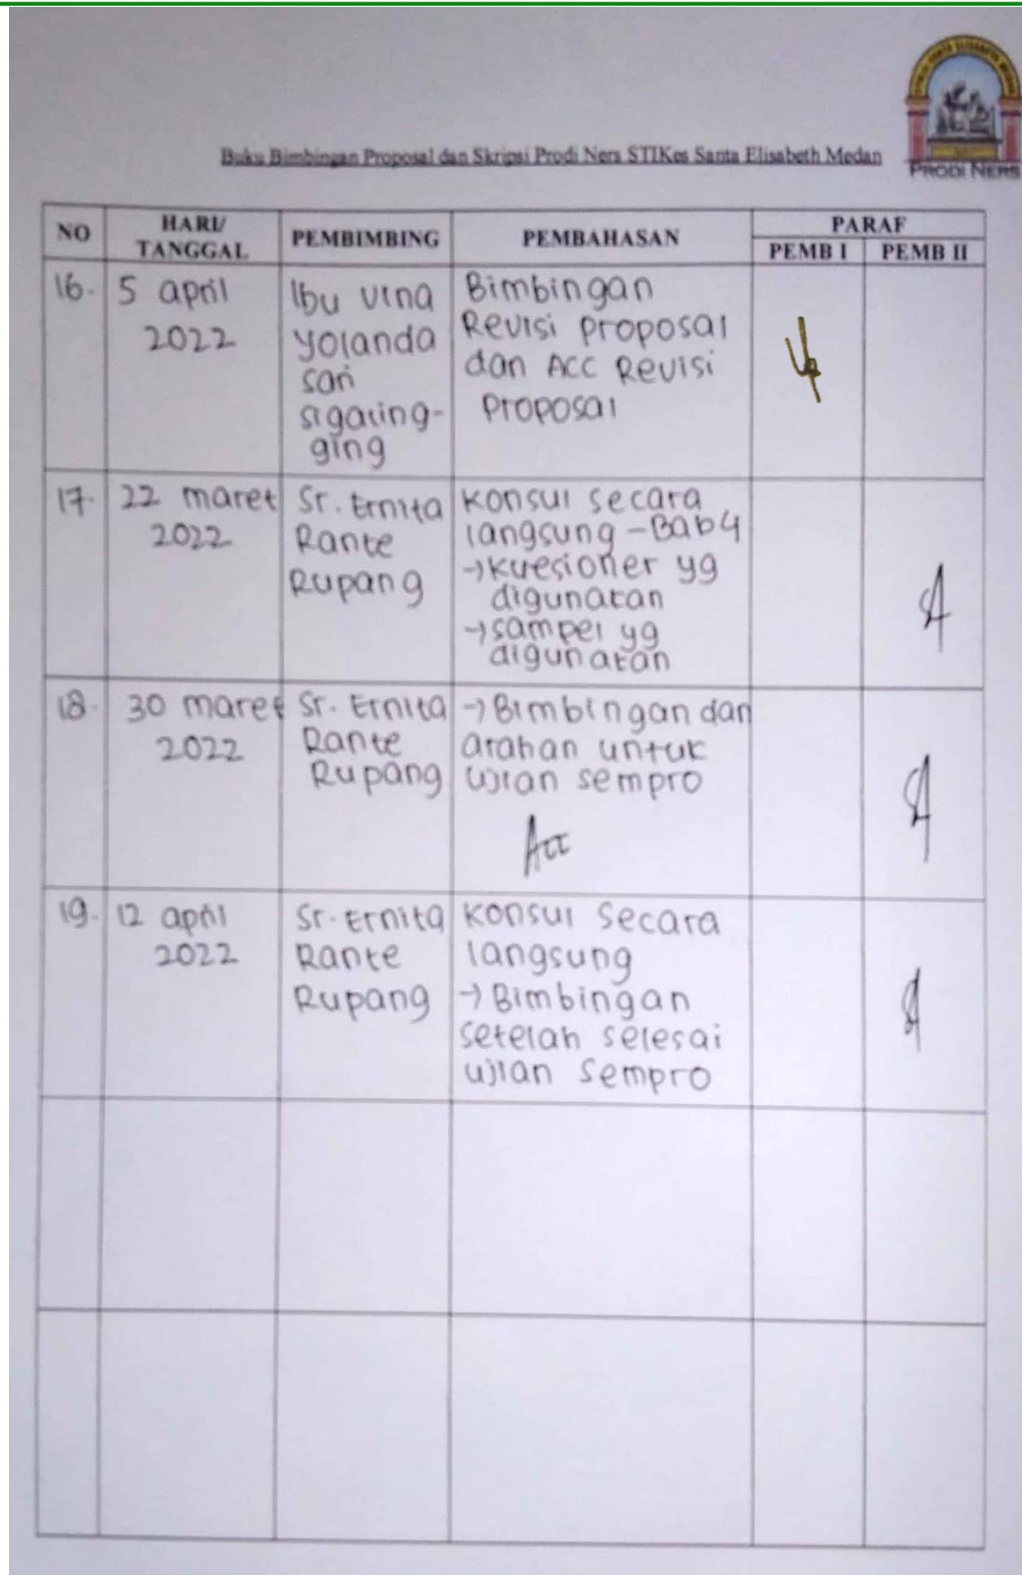 Buku Bimbingan Proposal dan Skripsi Prodi Ners STIKes Santa Elisabeth Medan
PRODI NERS
NO
HARI/
TANGGAL
PEMBIMBING
PEMBAHASAN
PARAF
PEMB I
PEMB II
16.
5 april
2022
Ibu vina
yolanda
sari
sigaling-
ging
Bimbingan
Revisi proposal
dan ACC Revisi
proposal
17.
22 maret
2022
Sr. Ernita
Rante
Rupang
Konsul secara
langsung - Bab 4
→ kuesioner yg
digunakan
→ sampel yg
digunakan
18.
30 maret
2022
Sr. Ernita
Rante
Rupang
→ Bimbingan dan
arahan untuk
ujian sempro
Acc
19.
12 april
2022
Sr. Ernita
Rante
Rupang
Konsul Secara
langsung
→ Bimbingan
setelah selesai
ujian Sempro